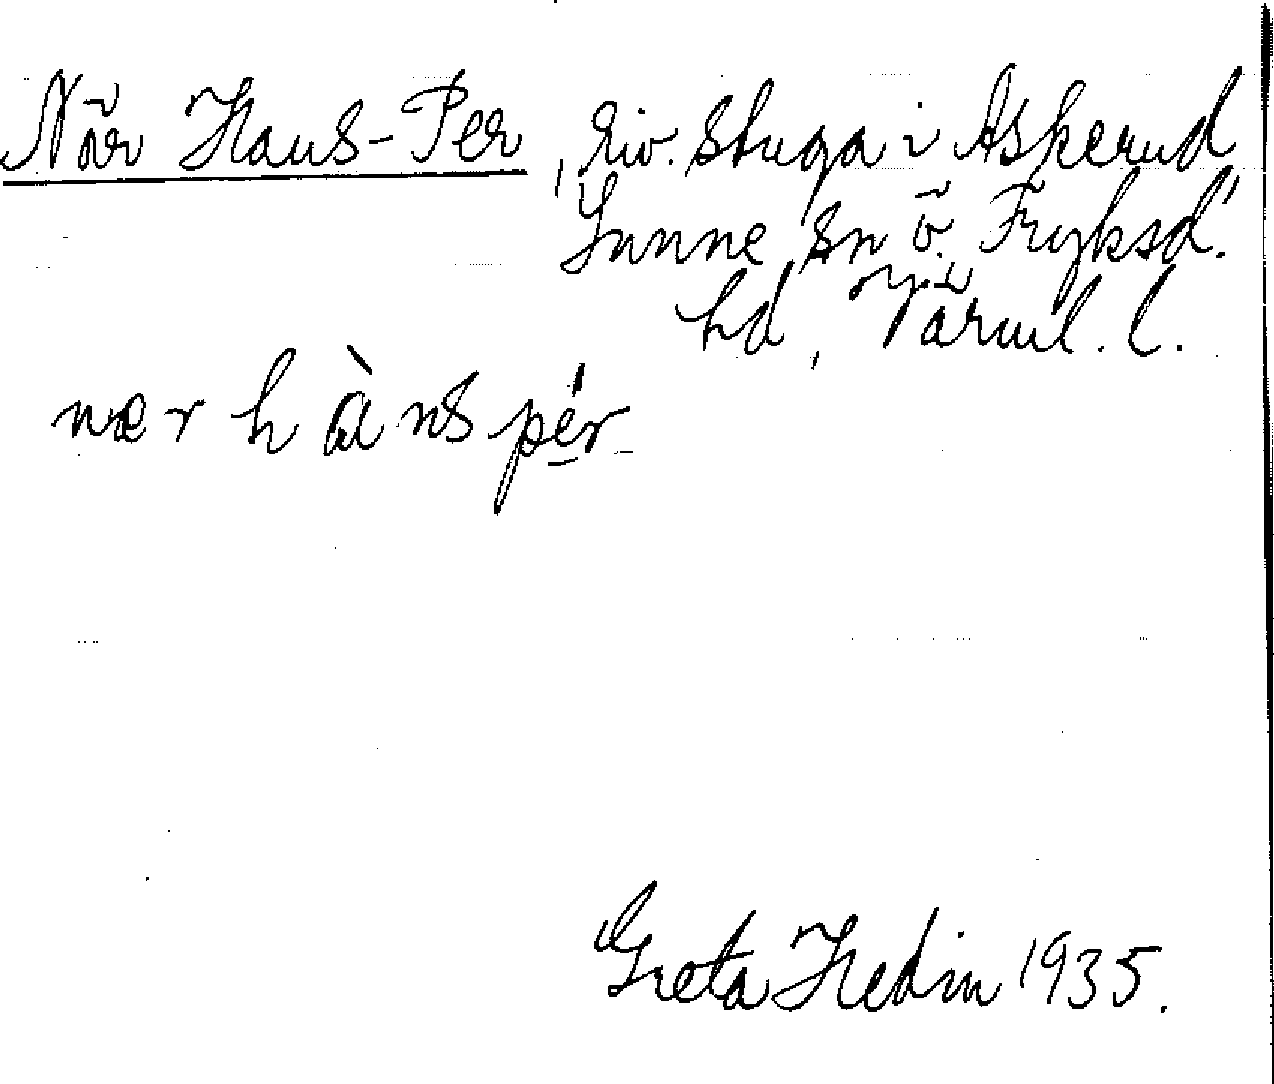 När Hans-Per, riv. stuga i Askerud
Sunne sn ö. Fryksd.
hd, Värml. l.
nær hàns pér
Greta Hedin 1935.